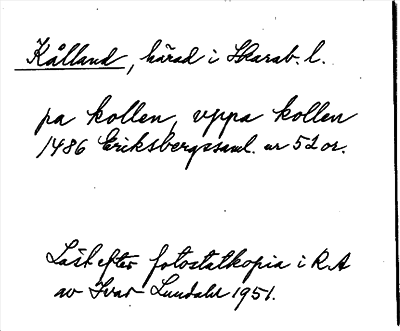 Kålland, härad i Skarab. l.
pa kollen, vppa kollen
1486 Eriksbergssaml. nr 52 or.
Läst efter fotostatkopia i RA
av Ivar Lundahl 1951.